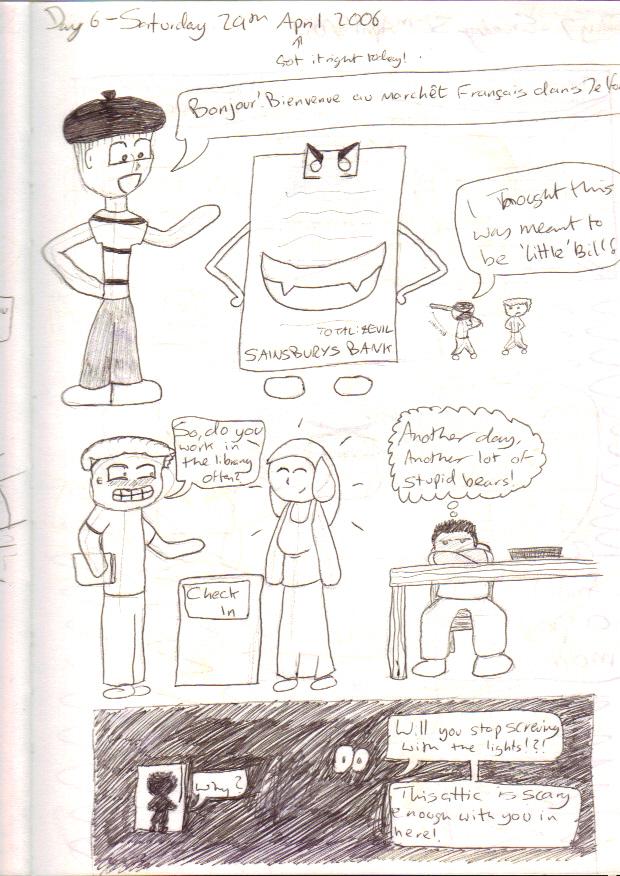 Day 6 - Saturday 29th April 2006
Got it right today!
Bonjour! Bienvenue au marchêt Français dans
I Thought this
was meant to
be 'Little' Bill!
TOTAL: £EVIL
SAINSBURYS BANK
So, do you
work in
the library
often?
Another day,
Another lot of
stupid bears!
Check
In
Will you stop screwing
with the lights!?!
Why?
This attic is scary
enough with you in
here!